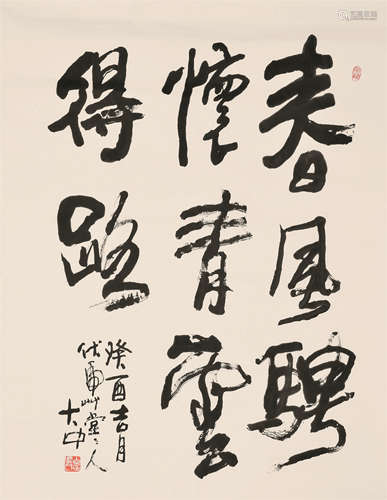 春風騁
懷青雲
得路
癸酉吉月
伏虎艸堂主人
大中